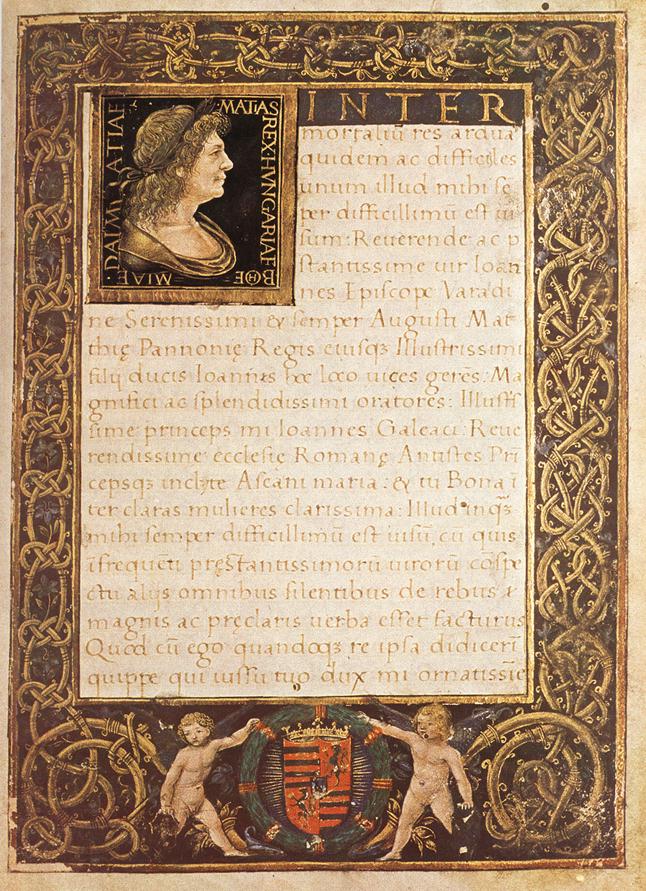 MATIAS REX HVNGARIAE BOE
MIAE DALMATIAE
INTER
mortaliū res ardua
quidem ac difficiles
unum illud mihi sē
per difficillimū est ui
sum: Reuerende ac p
stantissime uir Ioan
nes Episcope Varadi
ne Serenissimi et semper Augusti Mat
thię Pannonię Regis eiusqꝫ Illustrissimi
filij ducis Ioannis hoc loco uices gerēs: Ma
gnifici ac splendidissimi oratores: Illustš
sime princeps mi Ioannes Galeaci Reue
rendissime ecclesię Romanę Antistes Pri
cepsqꝫ inclyte Ascani maria: et tu Bona ī
ter claras mulieres clarissima: Illud inqꝫ
mihi semper difficillimū est uisū, cū quis
īfrequēti pręstantissimorū uirorū cōspe
ctu alijs omnibus silentibus de rebus
magnis ac pręclaris uerba esset facturus
Quod cū ego quandoqꝫ re ipsa didicerī
quippe qui iussu tuo dux mi ornatissīe